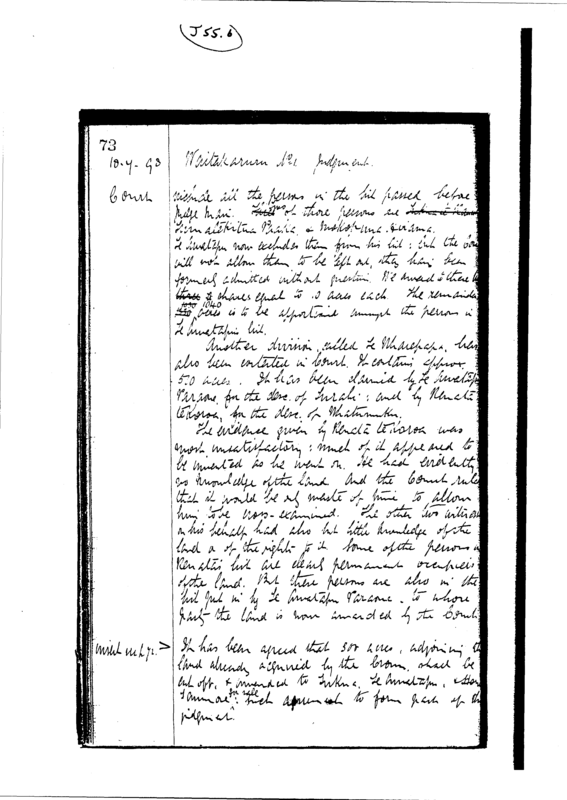 J 55. b
73
18-7-93 Waitakaruru No 1 Judgment.
Court
include all the persons in the list passed before
Judge Mair. of those persons are
&
Te Awatapu now excludes them from his list: but the Court
will not allow them to be left out, they having been
formerly admitted without question. We award to these
three shares equal to 10 acres each. The remainder
1040
acres is to be apportioned amongst the persons in
Te Awatapu's list.
Another division, called Te Wharepapa, has
also been contested in Court. It contains approx
50 acres. It has been claimed by Te Awatapu
Paraone, for the desc. of Turahi: and by Renata
te Koroa, for the desc. of
The evidence given by Renata te Koroa was
most unsatisfactory: much of it appeared to
be invented as he went on. He had evidently
no knowledge of the land. And the Court ruled
that it would be only waste of time to allow
him to be cross-examined. The other two witnesses
on his behalf had also but little knowledge of the
land or of the rights to it. Some of the persons in
Renata's list are clearly permanent occupiers
of the land. But these persons are also in the
list put in by Te Awatapu Paraone. to whose
party the land is now awarded by the Court.
It has been agreed that 300 acres, adjoining the
land already acquired by the Crown, shall be
cut off, & awarded to Te Awatapu, &
for sale: such agreement to form part of the
judgment.